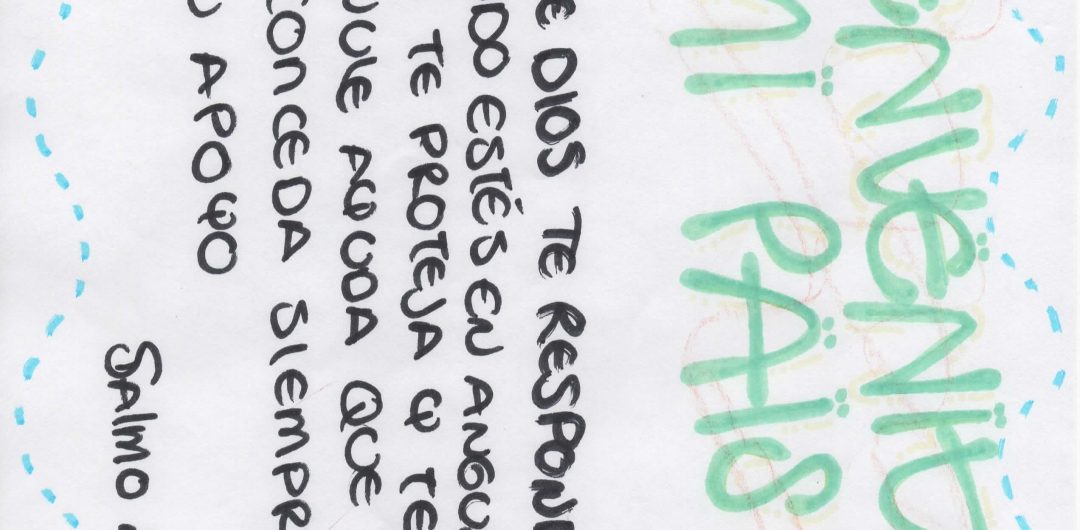 ENVENiT
Mi PAiS
E DIOS TE RESPON
DO ESTÉS EN ANGU
TE PROTEJA Y TE
UCLE AYUDA QUE
CONCEDA SIEMPR
APOYO
Salmo